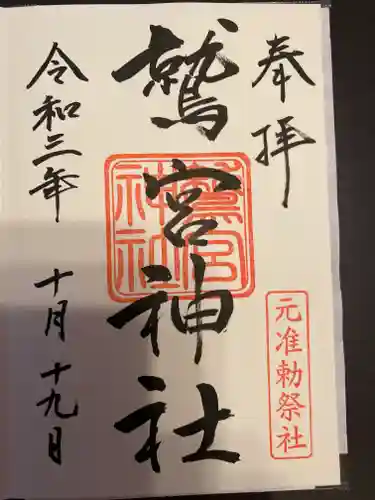 奉拝
元准勅祭社
鷲宮神社
鷲宮
神社
令和三年
十月十九日